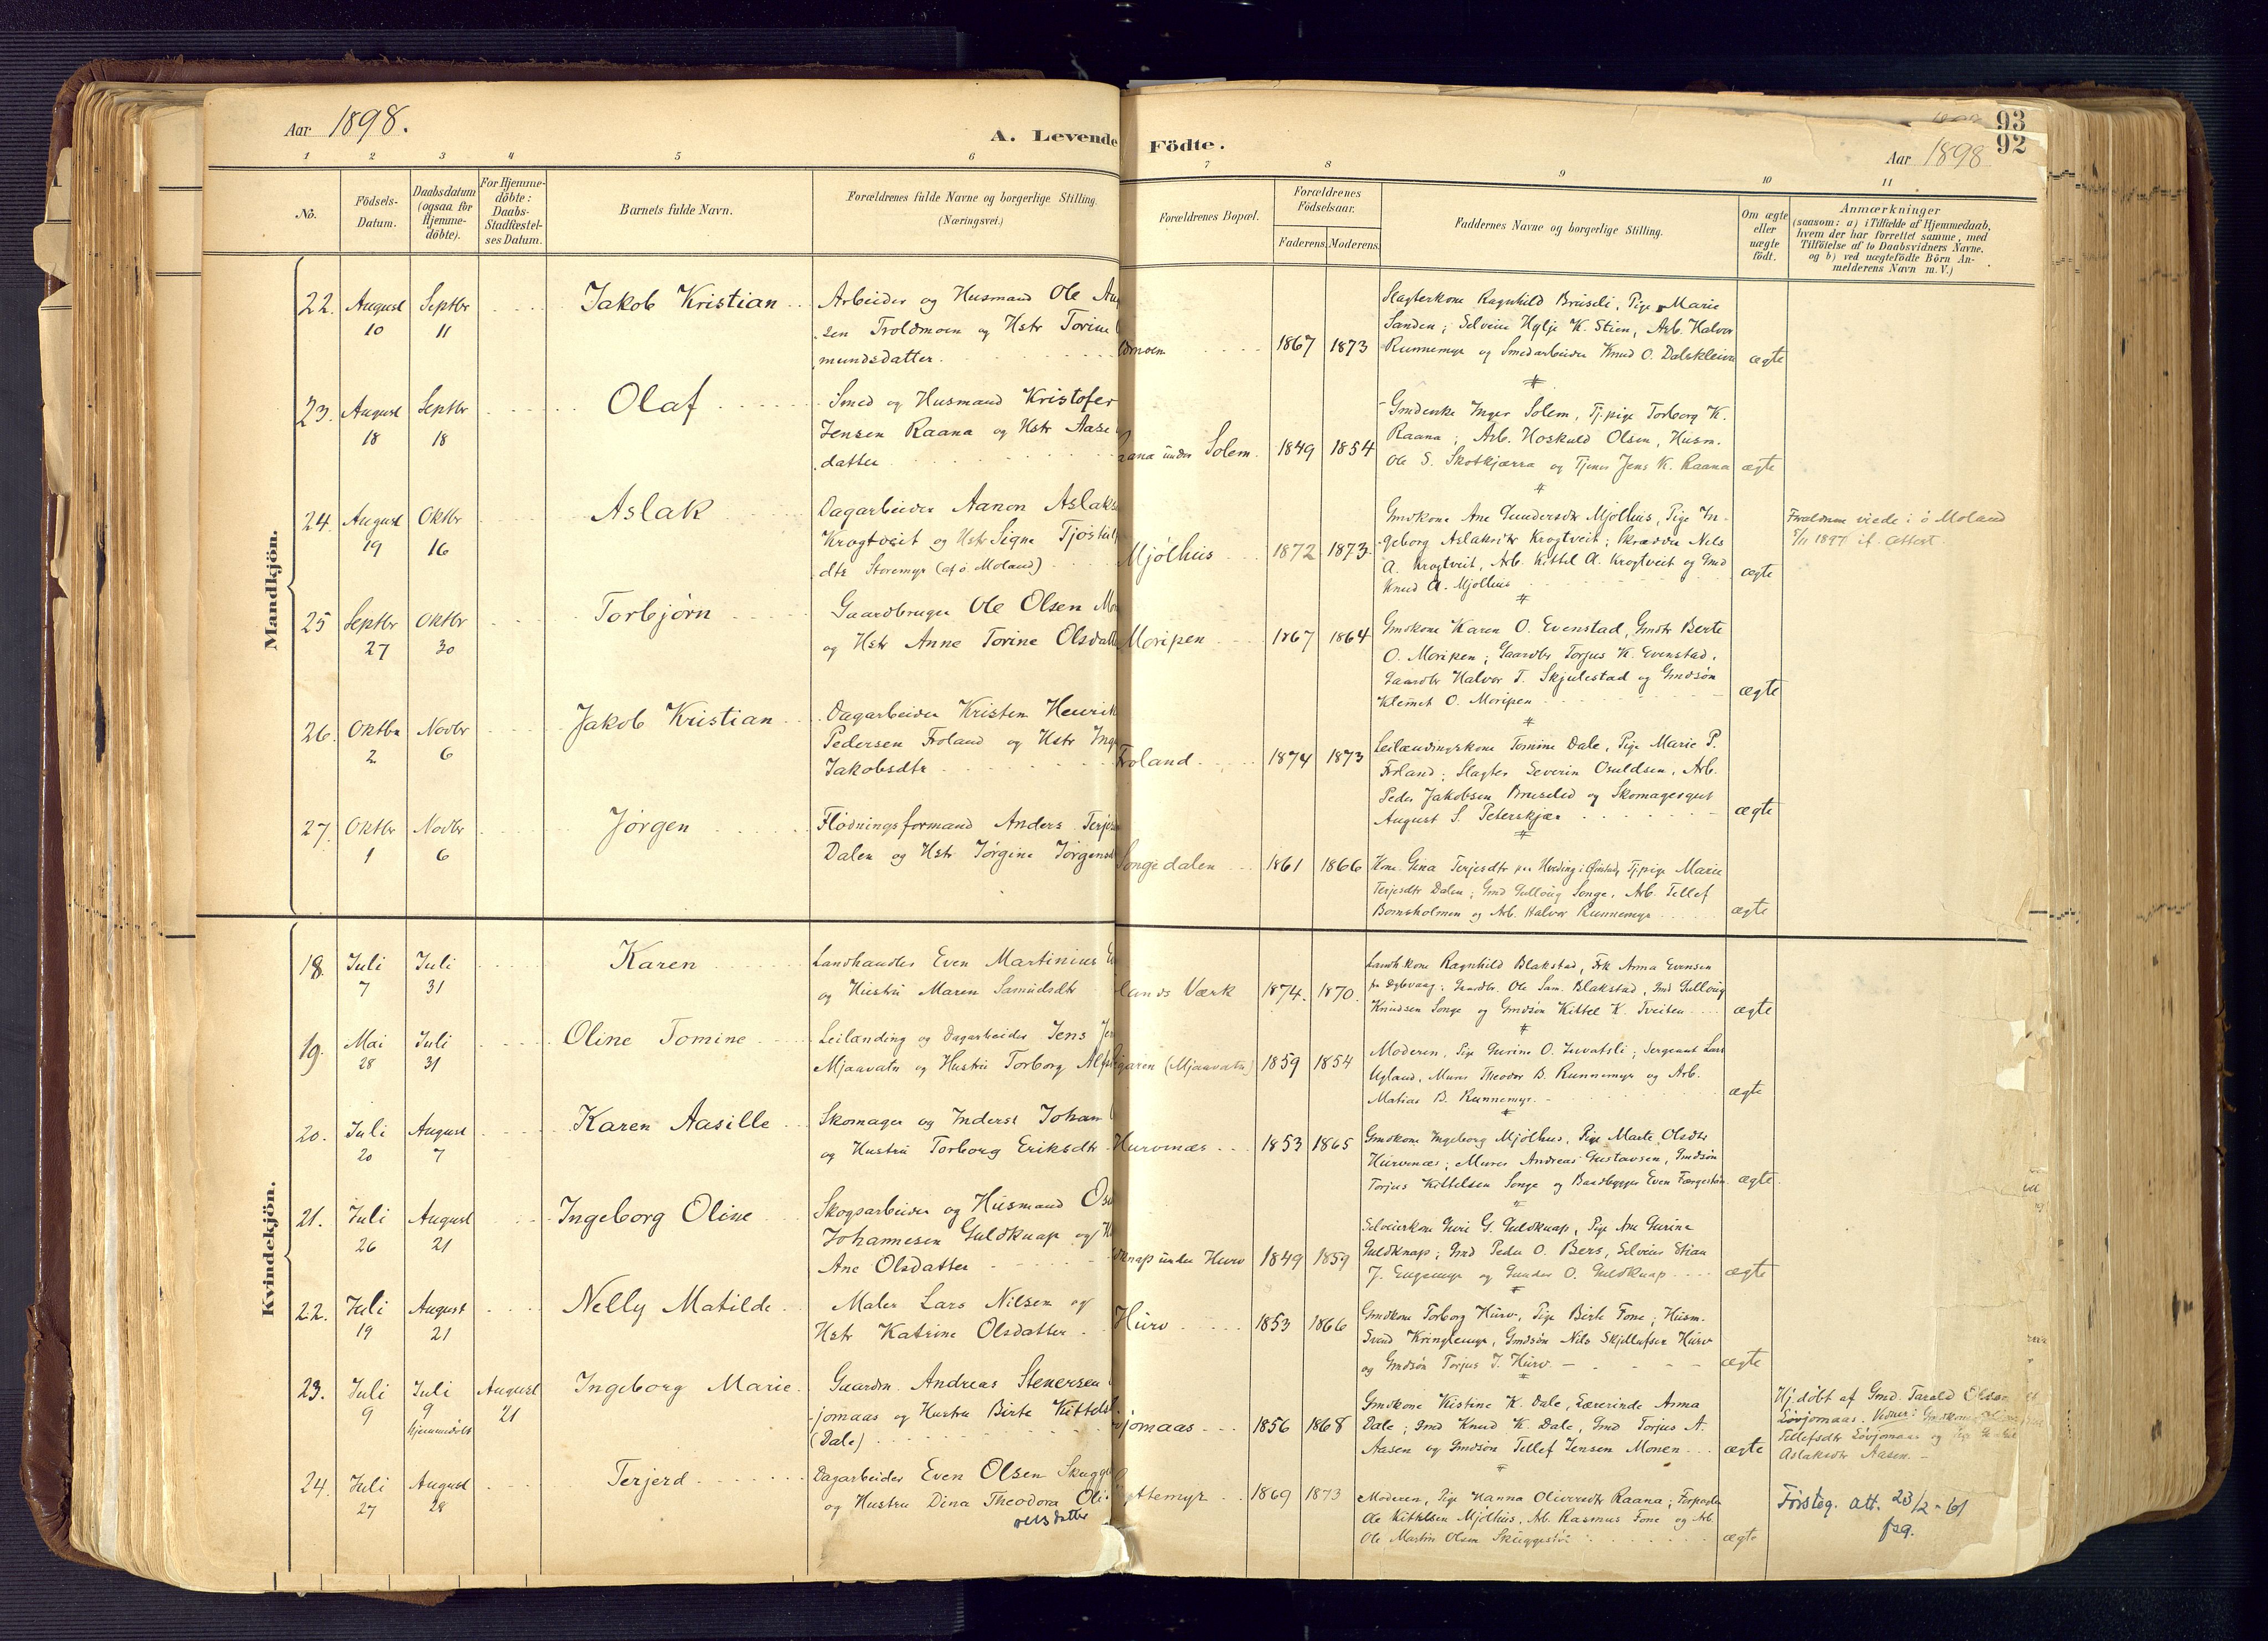 Aar 1898.
A. Levende Födte.
93
92
Aar 1898
1 2 3 4 5 6 7 8 9 10 11
No.
Födsels-
Datum.
Daabsdatum
(ogsaa for
Hjemme-
döbte).
For Hjemme-
döbte:
Daabs-
Stadfæstel-
ses Datum.
Barnets fulde Navn.
Forældrenes fulde Navne og borgerlige Stilling.
(Næringsvei.)
Forældrenes Bopæl.
Forældrenes
Födselsaar.
Faderens. Moderens.
Faddernes Navne og borgerlige Stilling.
Om ægte
eller
uægte
födt.
Anmærkninger
(saasom: a) i Tilfælde af Hjemmedaab,
hvem der har forrettet samme, med
Tilföielse af to Daabsvidners Navne.
og b) ved uægtefödte Börn An-
melderens Navn m. V.)
Mandkjön.
22. August
10
Septbr
11
Jakob Kristian
Arbeider og Husmand Ole
sen Troldmoen og Hstr Torine
mundsdatter.
1867 1873
Slagterkone Ragnhild Bruseli, Pige Marie
Sanden; Selveier Hylje K. Stien, Arb. Halvor
Runnemyr og Smedarbeider Knud O. Dalskleiva
ægte
23. August
18
Septbr
18
Olaf
Smed og Husmand Kristofer
Jensen Raana og Hstr Aase
datter
aana under Solem. 1849 1854
Gmdenke Inger Solem, Tj.pige Torborg K.
Raana; Arb. Hoskuld Olsen, Husm.
Ole S. Skotkjærra og Tjener Jens K. Raana
ægte
24. August
19
Oktbr
16
Aslak
Dagarbeider Aanon Aslaks
Krogtveit og Hstr Signe Tjostul
dtr Storemyr (af ö. Moland)
Mjölhus 1872 1873
Gmdkone Ane Gundersdtr Mjölhus, Pige In-
geborg Aslaksdtr Krogtveit; Skrædder Nils
A. Krogtveit, Arb. Kittil A. Krogtveit og Gmd
Knud A. Mjölhus
ægte
Forældrene viede i ö Moland
5/11 1897 if. attest.
25 Septbr
27
Oktbr
30
Torbjörn
Gaardbruger Ole Olsen
og Hstr Anne Torine Olsdatt
Moripen 1867 1864
Gmdkone Karen O. Evenstad, Gmdtr Berte
O. Moripen; Gaardbr Torjus K. Evenstad,
Gaardbr Halvor T. Skjulestad og Gmdsön
Klemet O. Moripen
ægte
26. Oktbr
2
Novbr
6
Jakob Kristian
Dagarbeider Kristen Henrik
Pedersen Froland og Hstr Ing
Jakobsdtr
Froland 1874 1873
Leilændingskone Tomine Dale, Pige Marie P.
Froland; Slagter Severin Osuldsen, Arb.
Peder Jakobsen Bruselid og Skomagersvend
August S. Peterskjær
ægte
27. Oktbr
1
Novbr
6
Jörgen
Flödningsformand Anders Terjes
Dalen og Hstr Jörgine Jörgensd
Songedalen 1861 1866
Kone Gina Terjesdtr Tjpige Marie
Terjesdtr Dalen; Gmd Gullaug Songe, Arb. Tellef
Bomsholmen og Arb. Halvor Runnemyr
ægte
Kvindekjön.
18. Juli
7
Juli
31
Karen
Landhandler Even Martinius
og Hustru Maren Samuelsdtr
lands Værk 1874. 1870.
Landh.kone Ragnhild Blakstad, Frk Anna Evensen
fra Dybvaag; Gaardbr. Ole Sam. Blakstad, Gmd Gulloug
Knudsen Songe og Gmdsön Kittel K. Tveiten
ægte
19. Mai
28
Juli
31
Oline Tomine
Leilænding og Dagarbeider Jens
Mjaavatn og Hustru Torborg
(Mjaavatn) 1859 1854
Moderen, Pige Gurine O. Luvatsli; Sergeant Lars
Ugland, Murer Theodor B. Runnemyr og Arb.
Matias B. Runnemyr.
ægte
20. Juli
20
August
7
Karen Aasille
Skomager og Inderst Johan
og Hustru Torborg Eriksdtr
Hurvenæs 1853 1865
Gmdkone Ingeborg Mjölhus, Pige Marte Olsdtr
Hurvenæs; Murer Andreas Gustavsen, Gmdsön
Torjus Kittelsen Songe og Baadbygger Even Færgestøn
ægte
21. Juli
26
August
21
Ingeborg Oline
Skogsarbeider og Husmand
Johannesen Guldknap og
Ane Olsdatter
knap under Hurv 1849 1859
Selveierkone Guri G. Guldknap, Pige Ane Gurine
Guldknap; Gmd Peder O. Bers, Selveier Stian
J. Engemyr og Gunder O. Guldknap
ægte
22. Juli
19
August
21
Nelly Matilde
Maler Lars Nilsen og
Hstr Katrine Olsdatter
Hurv 1853 1866
Gmdkone Torborg Hurv, Pige Birte Fone; Husm.
Svend Kringlemyr, Gmdsön Nils Skjellufsen Hurv
og Gmdsön Torjus J. Hurv.
ægte
23. Juli
9
Juli
9
hjemmedöbt
August
21
Ingeborg Marie.
Gaardm. Andreas Stenersen
jomaas og Hustru Birte Kittels
(Dale)
jomaas 1856 1868
Gmdkone Kistine K. Dale, Lærerinde Anna
Dale; Gmd Knud K. Dale, Gmd Torjus A.
Aasen og Gmdsön Tellef Jensen Monen
ægte
Hj.döbt af Gmd. Tarald
Lövjomaas. Vidner: Gmdkone
Tellefsdtr Lövjomaas og
Aslaksdtr Aasen.
24. Juli
27
August
28
Terjerd
Dagarbeider Even Olsen Skugge
og Hustru Dina Theodora Oli-
versdatter
ttemyr 1869 1873
Moderen, Pige Hanna Oliversdtr Raana; Forpagter
Ole Kittelsen Mjölhus, Arb. Rasmus Fone og Arb.
Ole Martin Olsen Skuggestöl
ægte
Förstég. att. 23/2-61